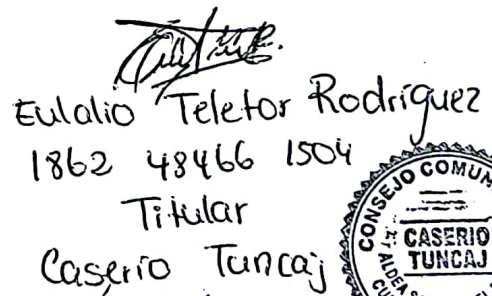 Eulalio Teletor Rodríguez
1862 48466 1504
Titular
Caserío Tuncaj
CONSEJO COMUN
CASERIO
TUNCAJ
ALDEA